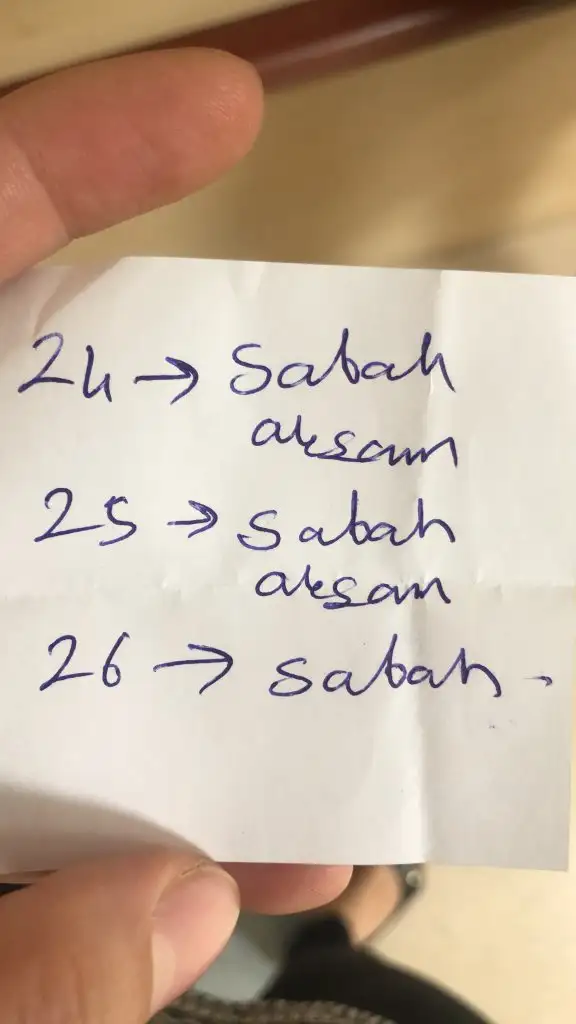 24 → Sabah
aksam
25 → Sabah
aksam
26 → Sabah